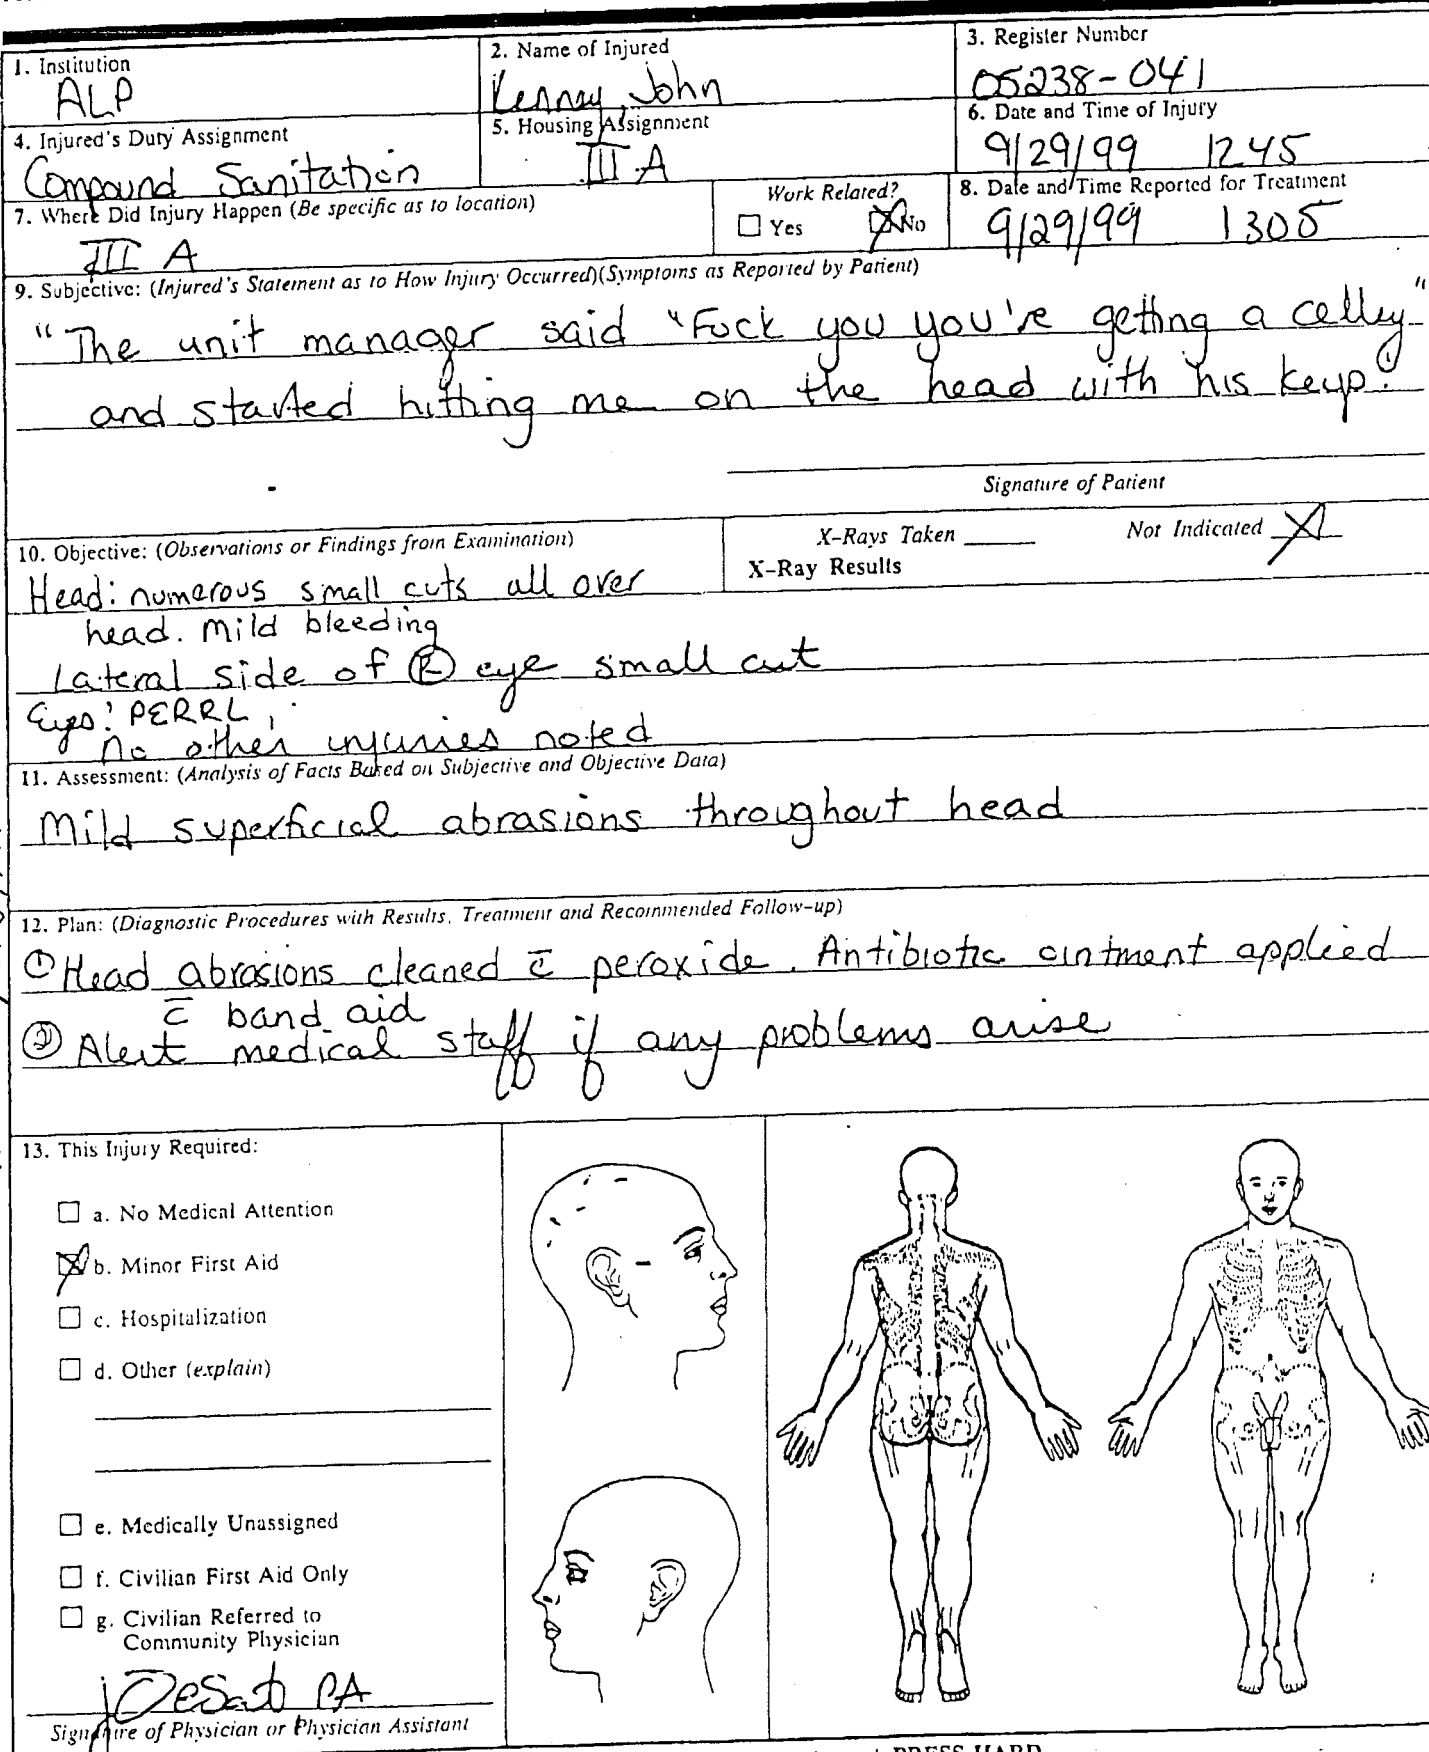 1. Institution
ALP
2. Name of Injured
Kenney, John
3. Register Number
05238-041
4. Injured's Duty Assignment
Compound Sanitation
5. Housing Assignment
III A
6. Date and Time of Injury
9/29/99 1245
7. Where Did Injury Happen (Be specific as to location)
III A
Work Related?
Yes No
8. Date and Time Reported for Treatment
9/29/99 1305
9. Subjective: (Injured's Statement as to How Injury Occurred)(Symptoms as Reported by Patient)
"The unit manager said "Fuck you you're getting a celley"
and started hitting me on the head with his keys."
Signature of Patient
10. Objective: (Observations or Findings from Examination)
X-Rays Taken Not Indicated X
X-Ray Results
Head: numerous small cuts all over
head. Mild bleeding
Lateral side of R eye small cut
Eyes: PERRL,
no other injuries noted
11. Assessment: (Analysis of Facts Based on Subjective and Objective Data)
Mild superficial abrasions throughout head
12. Plan: (Diagnostic Procedures with Results, Treatment and Recommended Follow-up)
① Head abrasions cleaned c̄ peroxide. Antibiotic ointment applied
c̄ band aid
② Alert medical staff if any problems arise
13. This Injury Required:
a. No Medical Attention
b. Minor First Aid
c. Hospitalization
d. Other (explain)
e. Medically Unassigned
f. Civilian First Aid Only
g. Civilian Referred to
Community Physician
PA
Signature of Physician or Physician Assistant
PRESS HARD